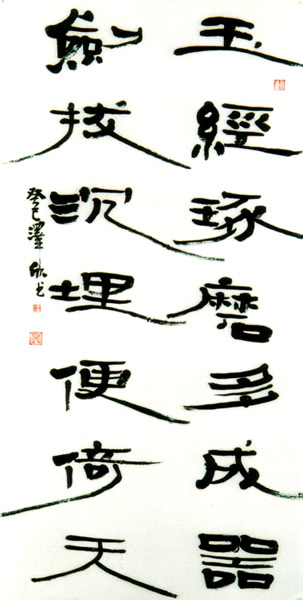 玉經琢磨多成器
劍拔沉埋便倚天
癸巳澤